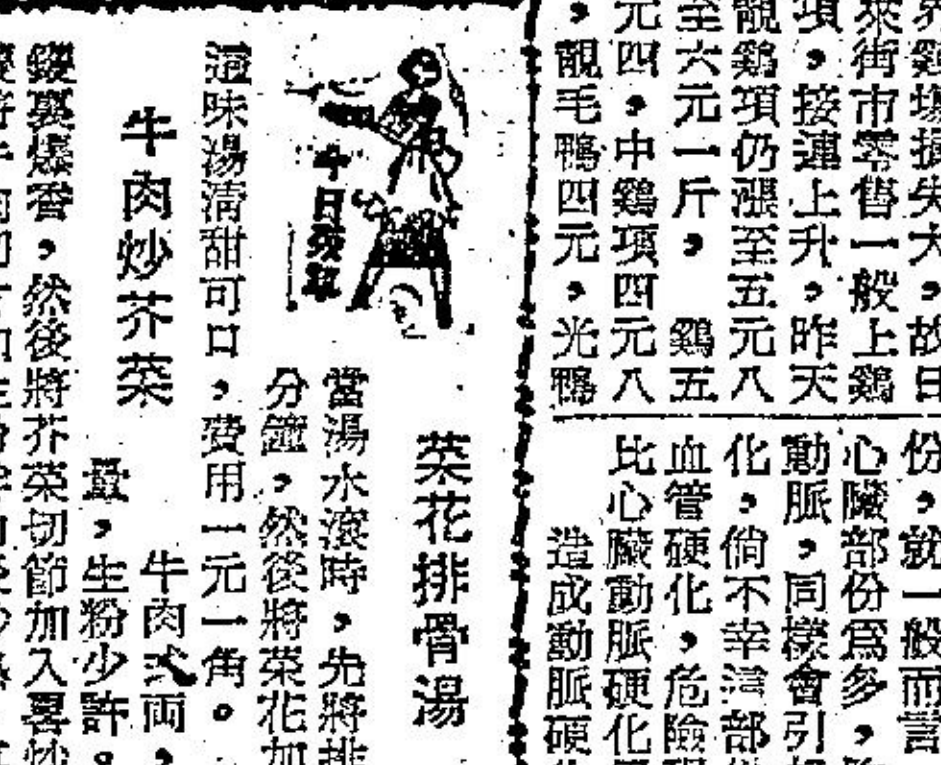 來街市零售一般上鷄
項，接連上升，昨天
靚鷄項仍漲至五元八
至六元一斤，鷄五
元四，中鷄項四元八
，靚毛鴨四元，光鴨
份，就一般而言
心臟部份爲多，
動脈，同樣會引
化，倘不幸這部
血管硬化，危險
比心臟動脈硬化
造成動脈硬
今日孜單
菜花排骨湯
當湯水滾時，先將排
分鐘，然後將菜花加
這味湯清甜可口，費用一元一角。
牛肉炒芥菜
牛肉弍両，
量，生粉少許。
鑊裏爆香，然後將芥菜切節加入畧炒